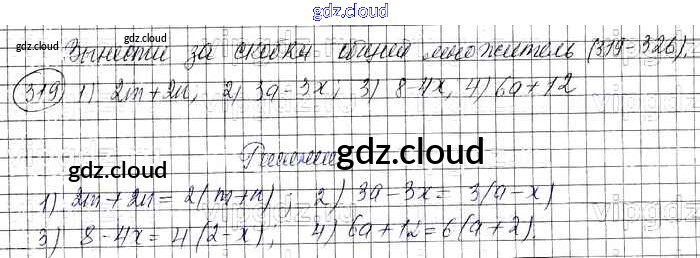 gdz.cloud
Вынести за скобки общий множитель (319-326).
319) 1) 2m+2n; 2) 3a-3x; 3) 8-4x, 4) 6a+12
gdz.cloud
gdz.cloud
gdz.cloud
gdz.cloud
Решение
1) 2m+2n=2(m+n); 2) 3a-3x=3(a-x)
3) 8-4x=4(2-x); 4) 6a+12=6(a+2).
gdz.cloud
gdz.cloud